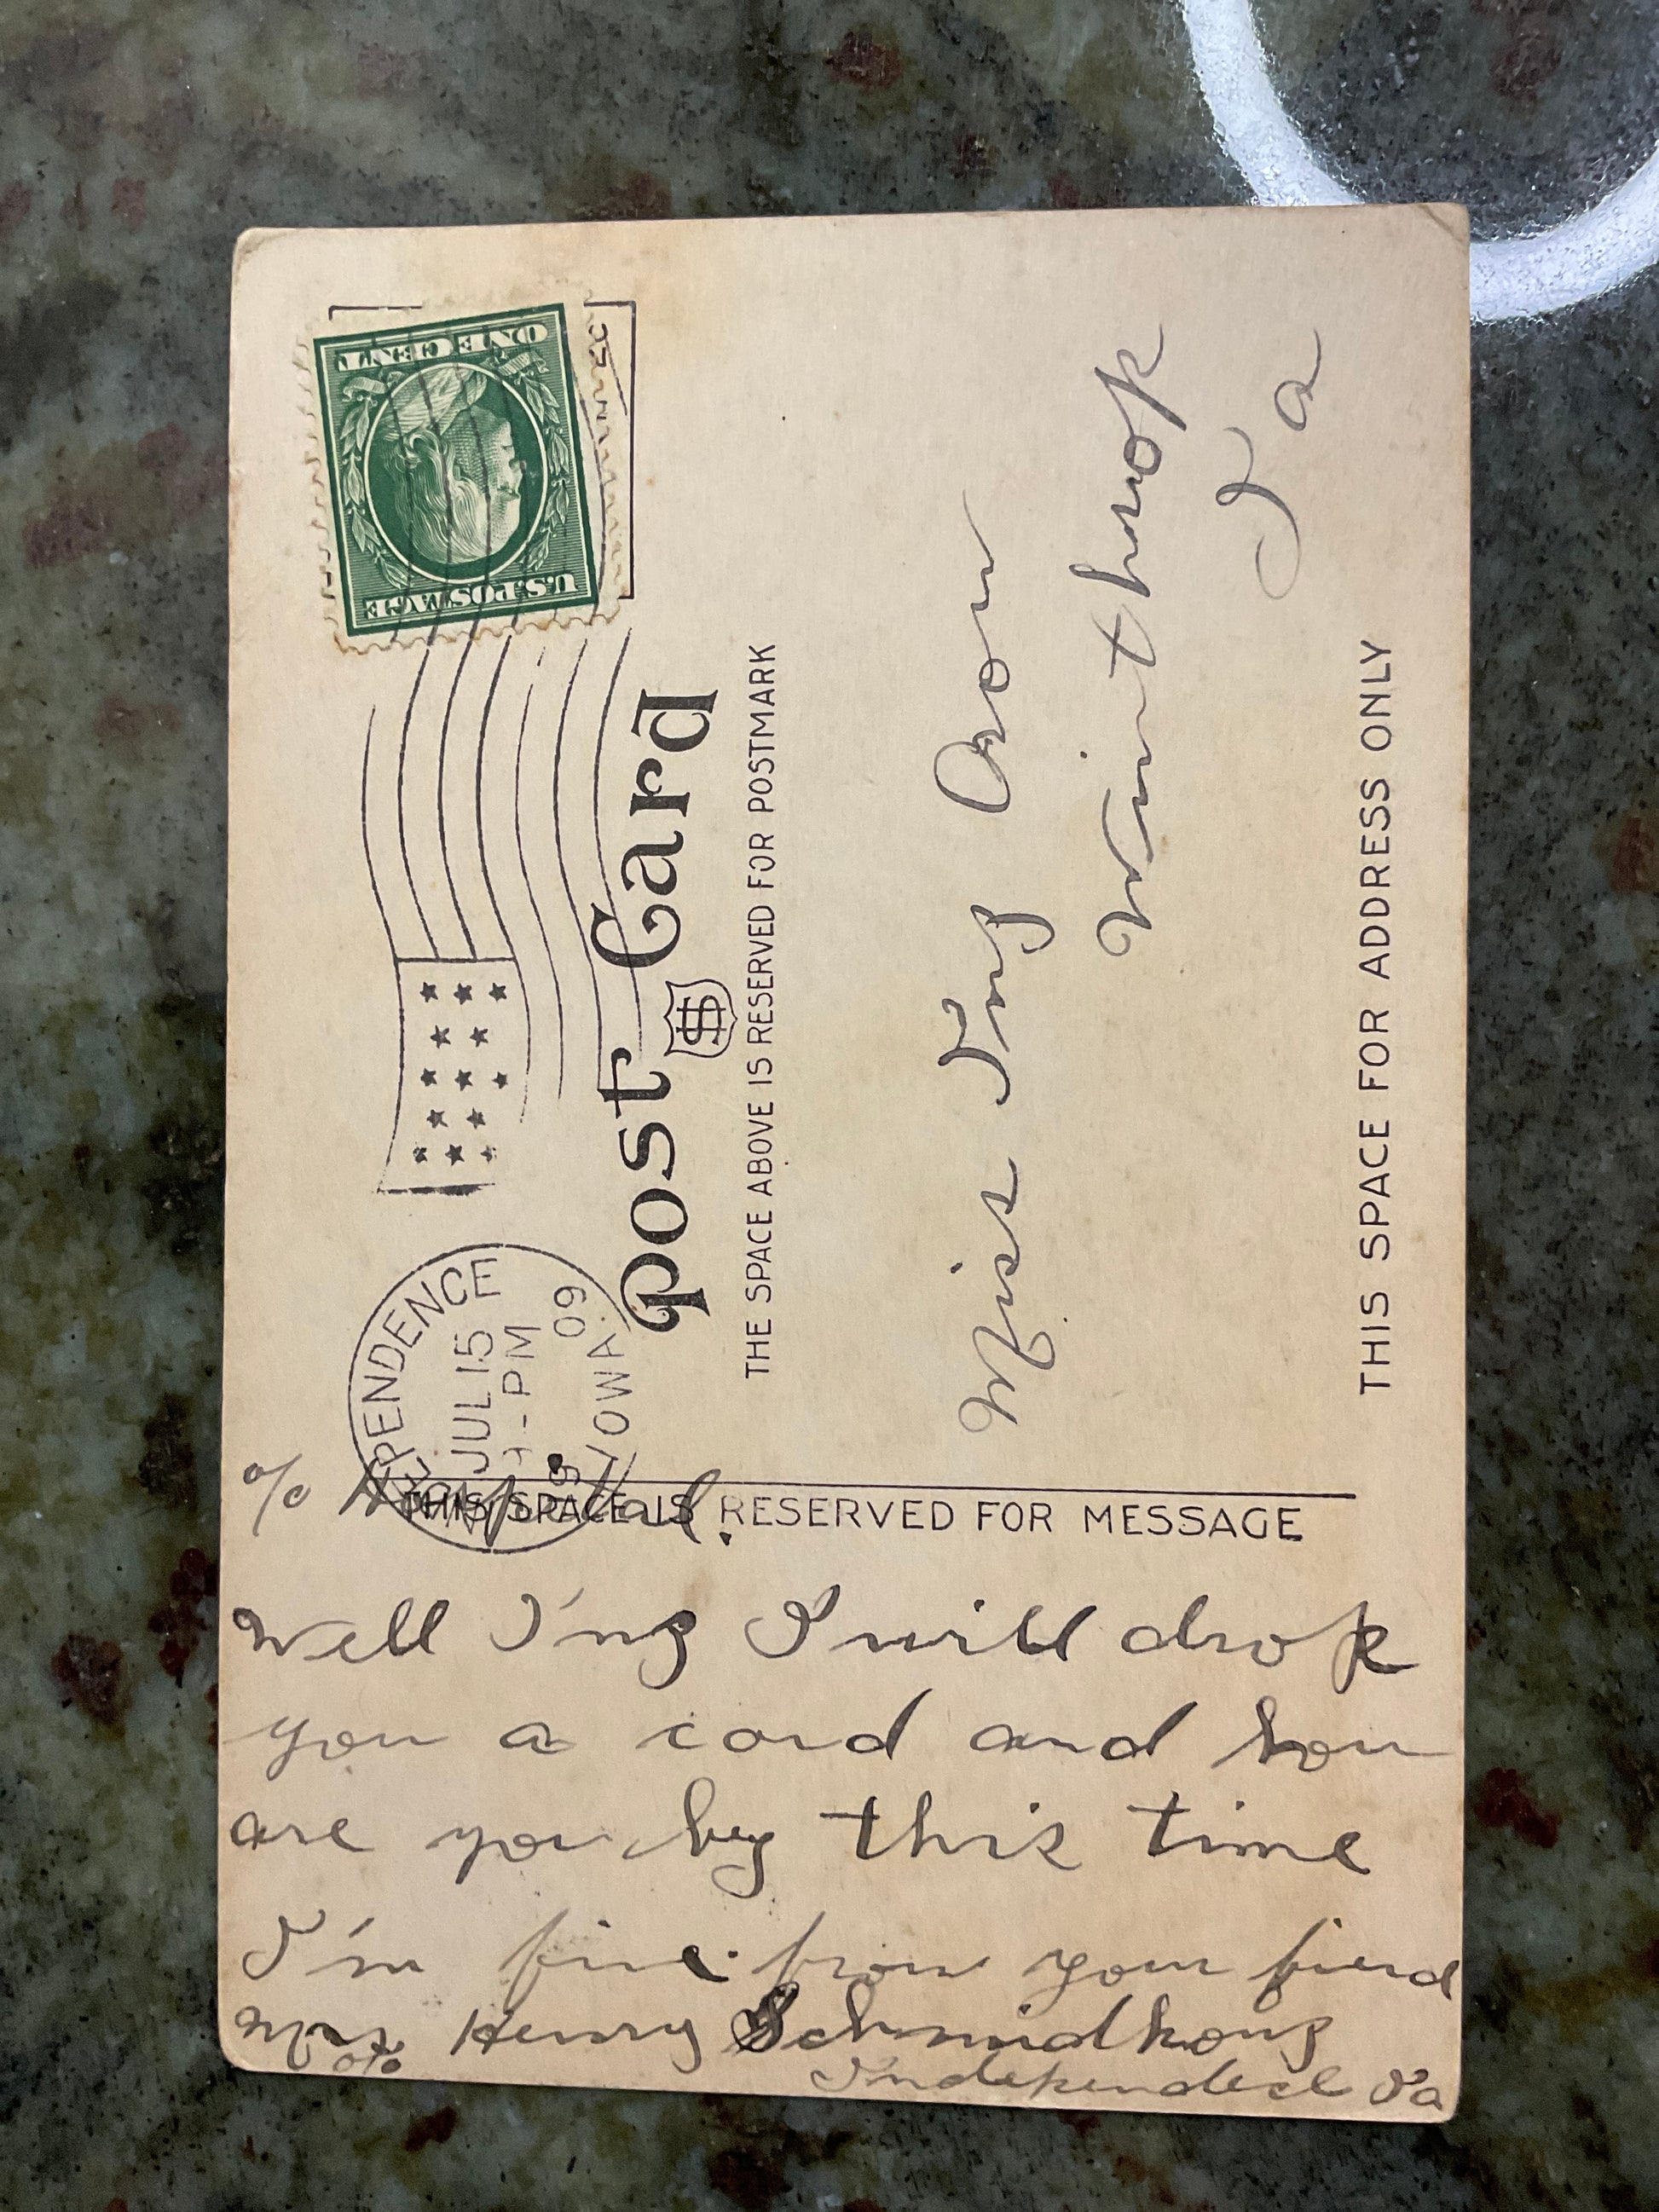 U.S. POSTAGE
ONE CENT
INDEPENDENCE
JUL 15
-PM
09
IOWA.
Post Card
THE SPACE ABOVE IS RESERVED FOR POSTMARK
Miss Ing
Winthrop
Ia
THIS SPACE FOR ADDRESS ONLY
THIS SPACE IS RESERVED FOR MESSAGE
% Hospital.
Well Ing I will drop
you a card and how
are you by this time
I'm fine. from your fierd
Henry
Ia